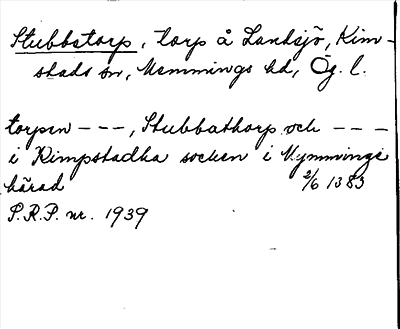 Stubbetorp, torp å Landsjö, Kim-
stads sn, Memmings hd, Ög. l.
torpen - - -, Stubbathorp och - - -
i Kimpstadha socken i Mymmingx
härad 2/6 1383
S.R.P. nr. 1939